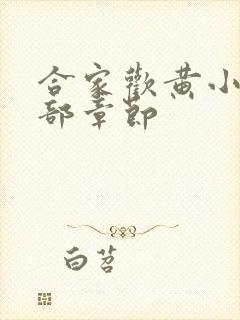 合家歡黄小
部章節
白苕